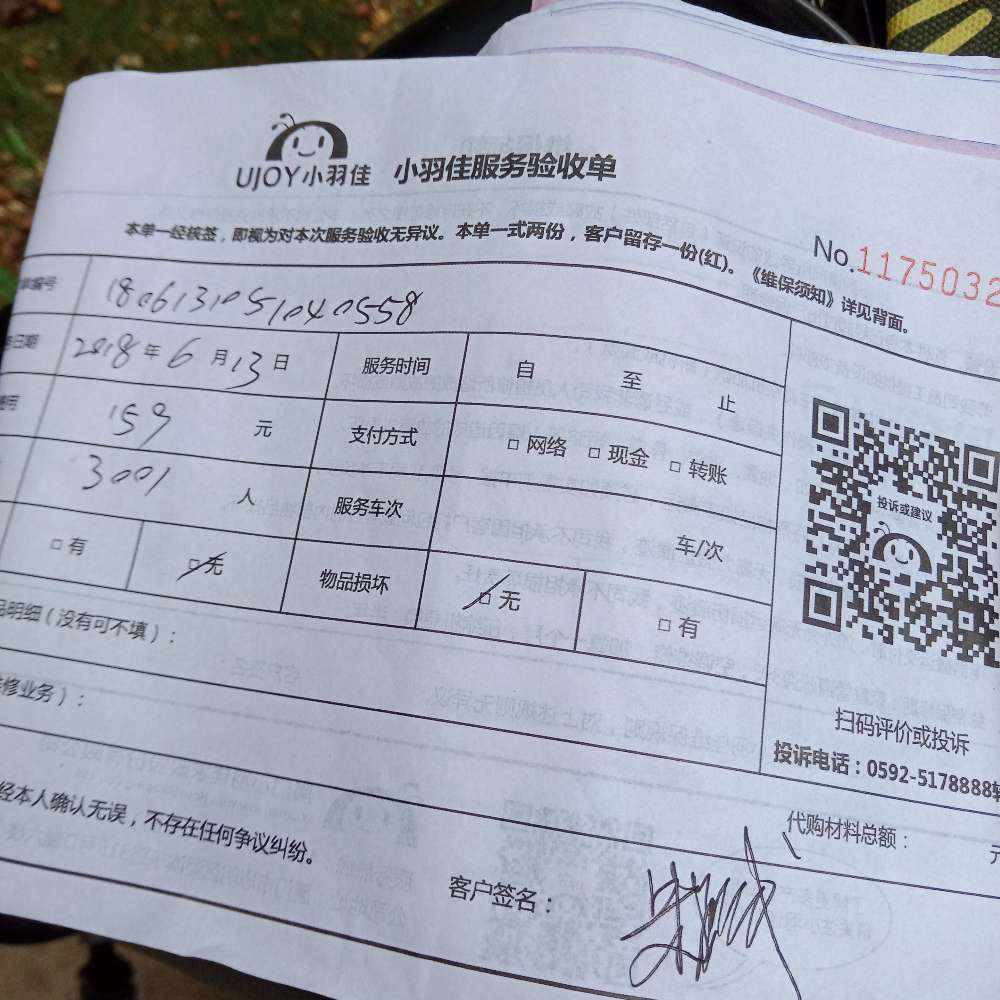 UJOY小羽佳 小羽佳服务验收单
本单一经核签，即视为对本次服务验收无异议。本单一式两份，客户留存一份(红)。《维保须知》详见背面。
No.1175032
单编号 1806131051040558
日期 2018年6月13日 服务时间 自 至 止
费用 159 元 支付方式 □ 网络 □ 现金 □ 转账
3001 人 服务车次 车/次
□ 有 □ 无 物品损坏 □ 无 □ 有
品明细（没有可不填）：
维修业务）：
投诉或建议
扫码评价或投诉
投诉电话：0592-5178888转
代购材料总额： 元
经本人确认无误，不存在任何争议纠纷。
客户签名：